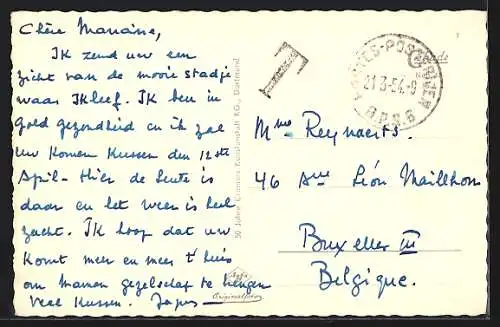 Chère Maraine,
Ik zend uw een
zicht van de mooie stadje
waar ik leef. Ik ben in
goed gezondheid en ik zal
uw komen kussen den 12ste
April - Hier de lente is
daar en let weer is heel
zacht. Ik hoop dat uw
komt meer en meer t'huis
om Maman gezelschap te
Veel kussen.
50 Jahre Cramers Kunstanstalt KG., Dortmund
T
POSTES-POSTERIJEN
21 3-54-9
B.P.S. 6
Mme Reynaerts.
46 Ave Léon Mailhon
Bruxelles III
Belgique.
Originalfoto